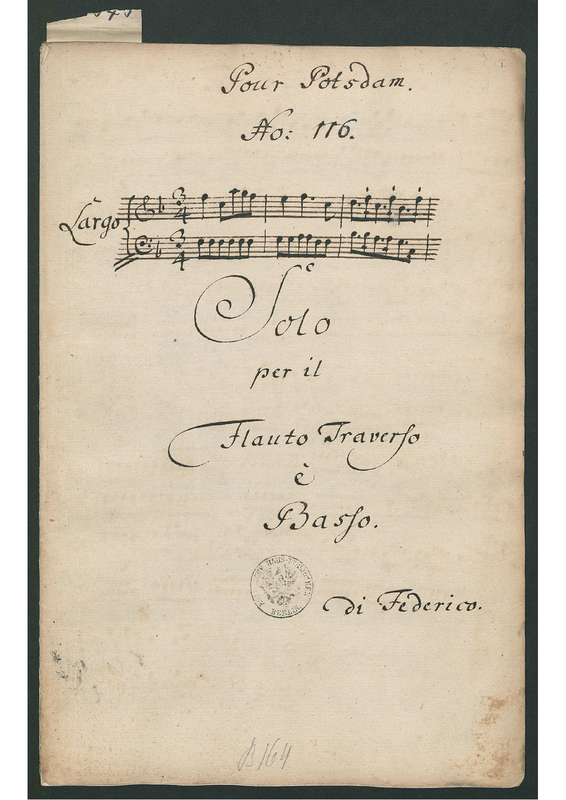 1
Pour Potsdam.
No: 116.
Largo
3
4
3
4
Solo
per il
Flauto Traverso
è
Basso.
BERLIN
di Federico.
B 164